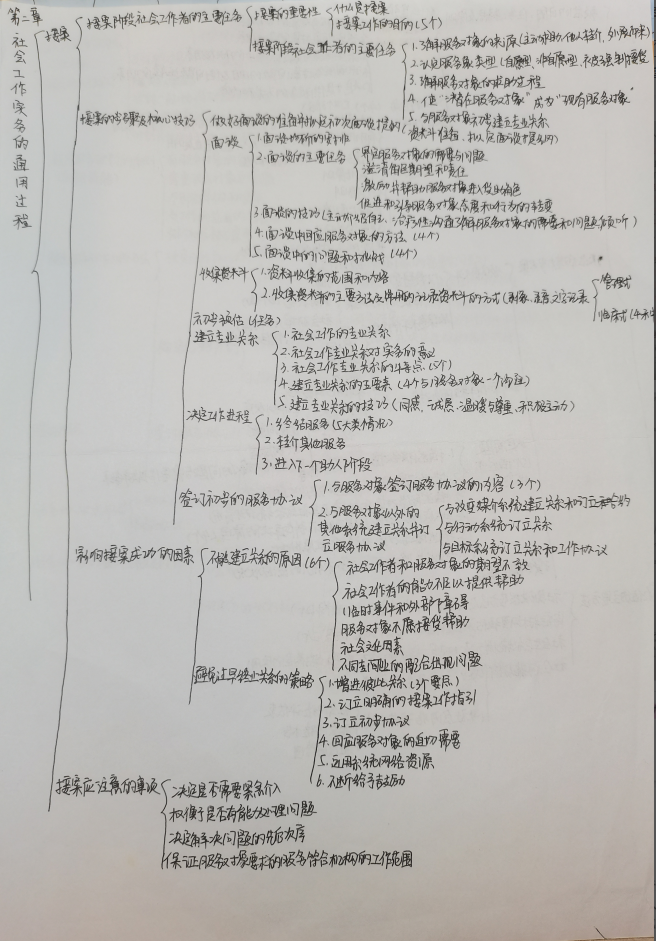 第二章
社会工作实务的通用过程
接案
接案阶段社会工作者的主要任务
接案的重要性
什么是接案
接案工作的目的(5个)
接案阶段社会工作者的主要任务
1.了解服务对象的来源(主动求助,他人转介,外展而来)
2.认定服务对象类型(自愿型、非自愿型
3.了解服务对象的求助过程
4.使“潜在服务对象”成为“现有服务对象”
5.与服务对象初步建立专业关系
接案的步骤及核心技巧
做好面谈的准备并拟定初次面谈提纲(资料准备、拟定面谈提纲)
面谈
1.面谈场所的安排
2.面谈的主要任务
界定服务对象的需要与问题
澄清角色期望和责任
激励并帮助服务对象进入受助角色
促进和引导服务对象态度和行为的转变
3.面谈的技巧(主动介绍自己、治疗性沟通 了解服务对象的需要和问题、倾听)
4.面谈中回应服务对象的方法(4个)
5.面谈中的问题和挑战(4个)
收集资料
1.资料收集的范围和内容
2.收集资料的主要方法及
记录资料的方式(录像、录音 文字记录
管理式
临床式(4
初步预估(任务)
建立专业关系
1.社会工作的专业关系
2.社会工作专业关系对实务的意义
3.社会工作专业关系的特点(5个)
4.建立专业关系的主要素(4个与服务对象一个沟通)
5.建立专业关系的技巧(同感、诚恳、温暖与尊重、积极主动)
决定工作进程
1.终结服务(5大类情况)
2.转介其他服务
3.进入下一个助人阶段
签订初步的服务协议
1.与服务对象签订服务协议的内容(3个)
2.与服务对象以外的其他系统建立关系并订立服务协议
与改变媒介系统建立关系和订立契约
与行动系统订立关系
与目标系统订立关系和工作协议
影响接案成功的因素
不能建立关系的原因(6个)
社会工作者和服务对象的期望不一致
社会工作者的能力不足以提供帮助
临时事件和外部障碍
服务对象不愿接受帮助
社会文化因素
不同专业间的配合出现问题
避免过早终止关系的策略
1.增进彼此关系(3个要点)
2.订立明确的接案工作指引
3.订立初步协议
4.回应服务对象的迫切需要
5.运用系统网络资源
6.不断给予鼓励
接案应注意的事项
决定是否需要紧急介入
权衡是否有能力处理问题
决定解决问题的先后次序
保证服务对象要求的服务符合机构的工作范围